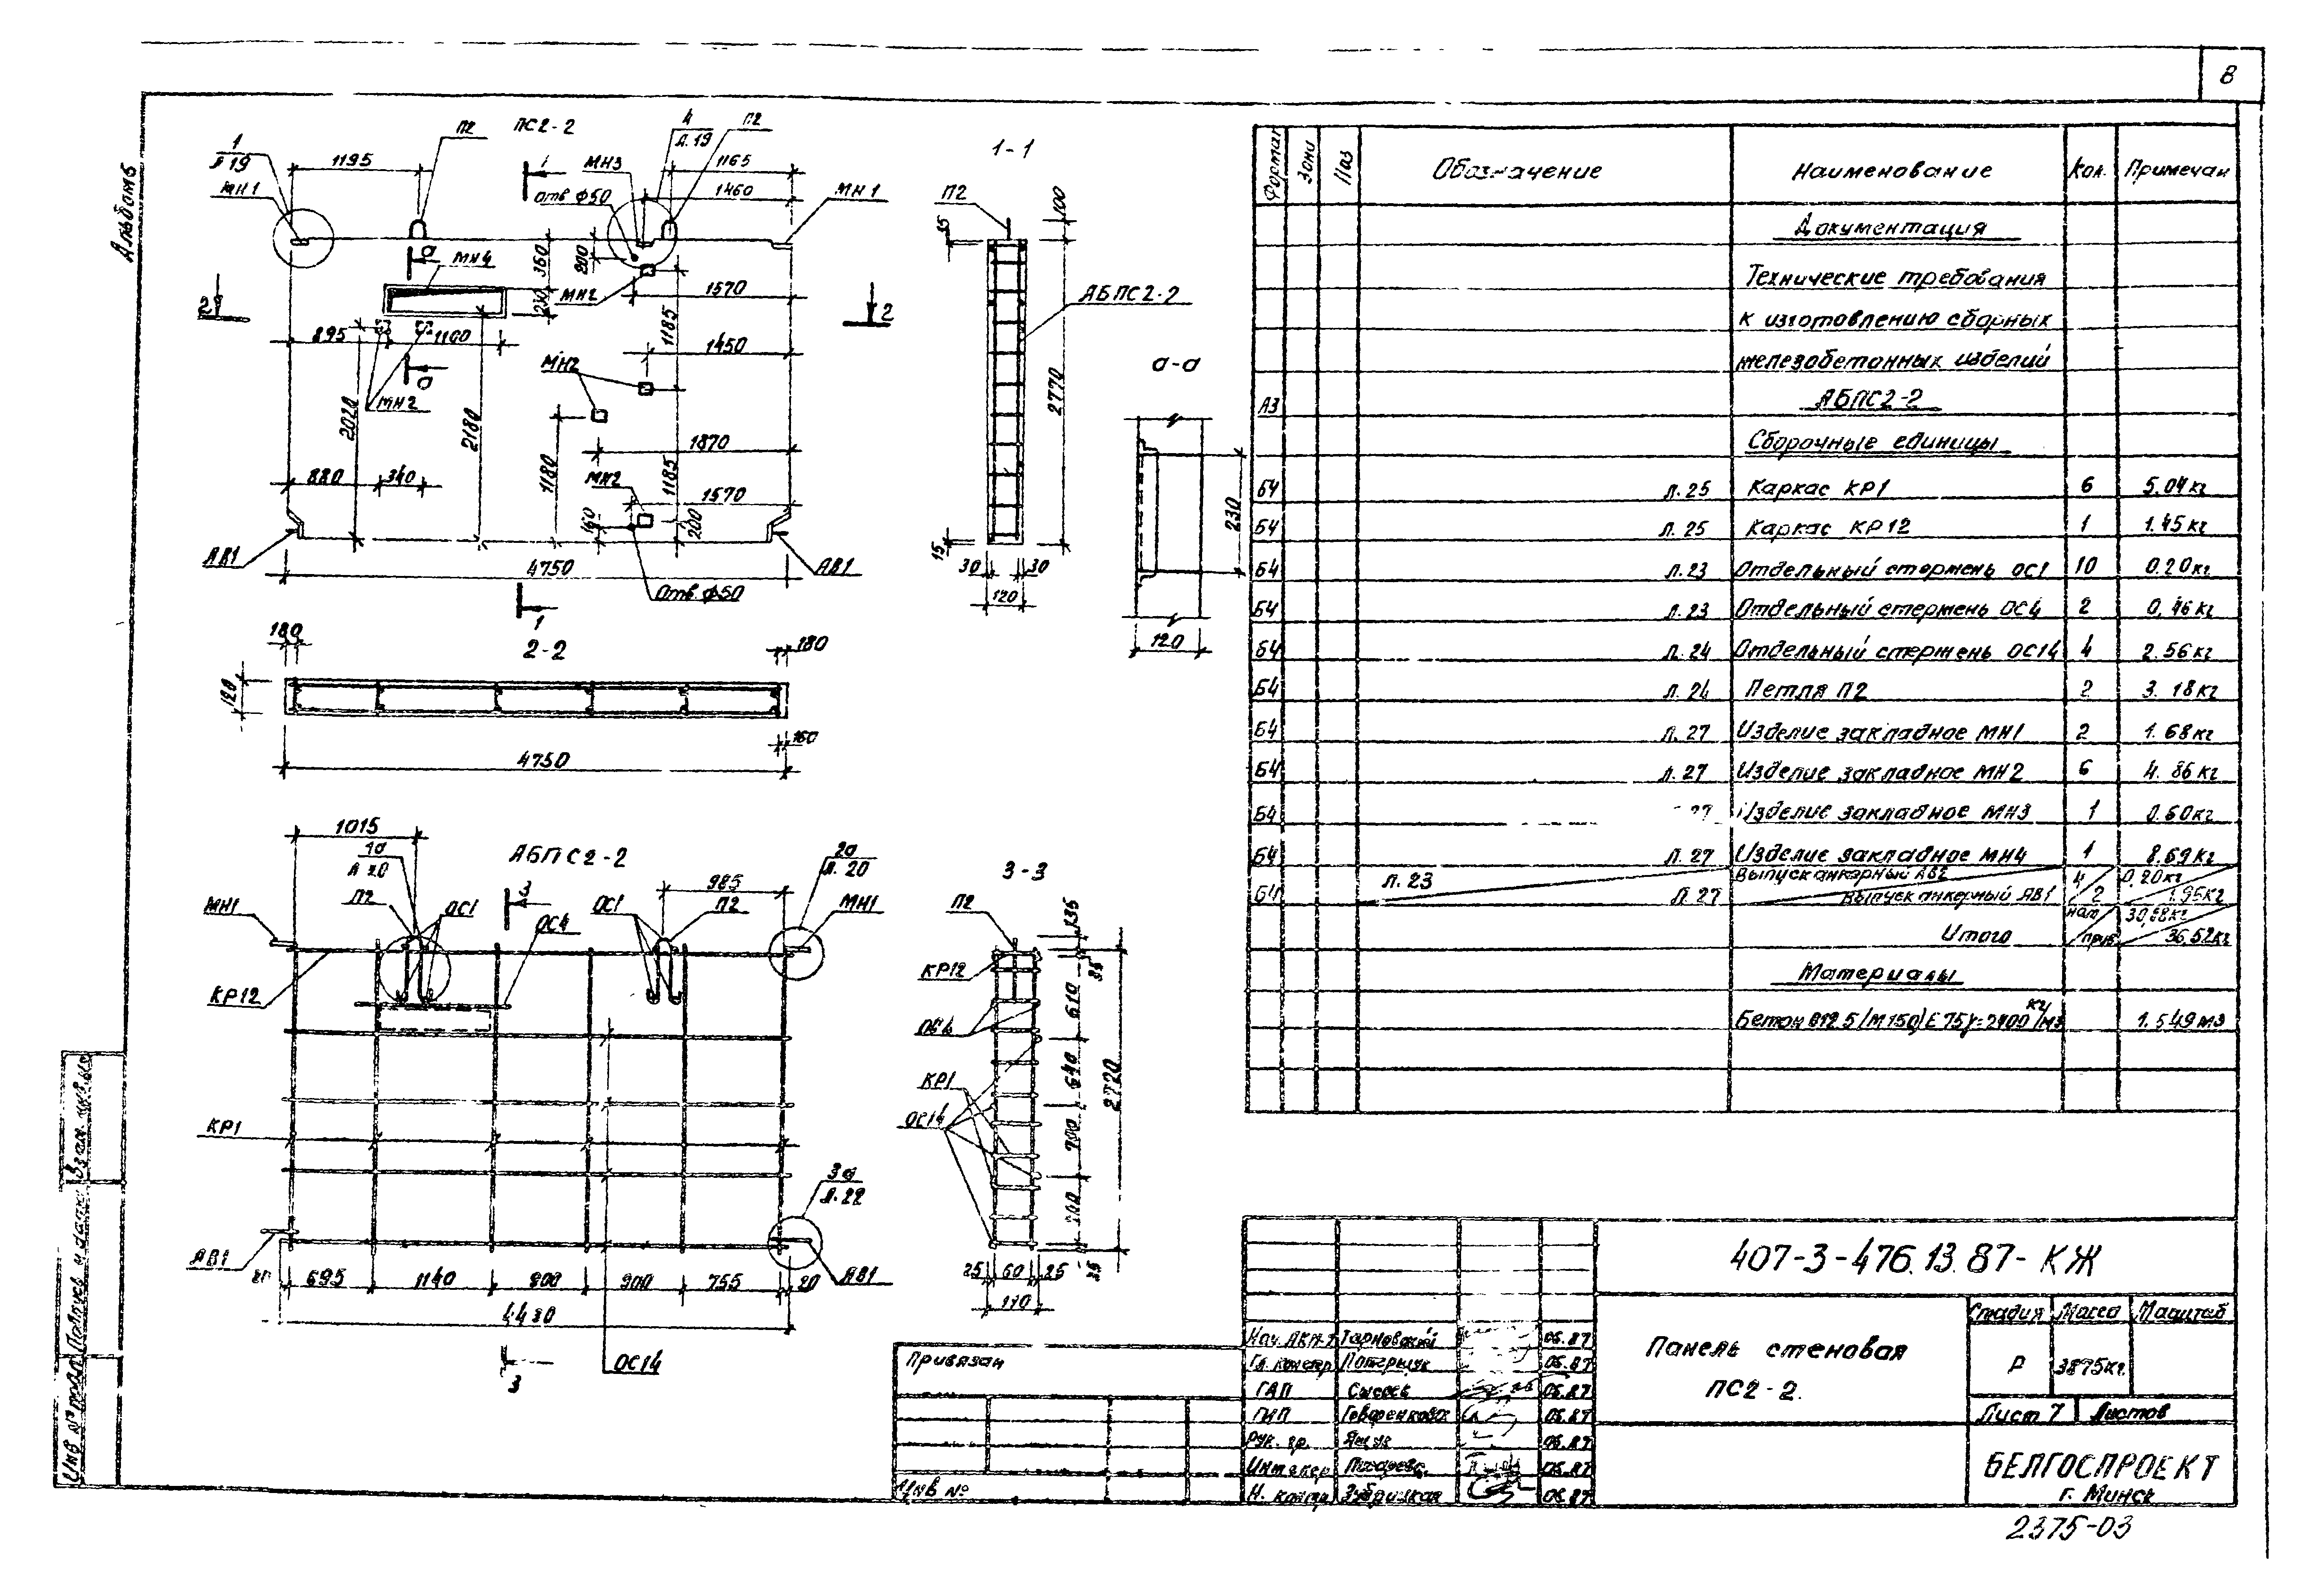 8
Альбом 6
ПС2-2
1
Л 19
МН1
1195
П2
1
МН3
отв ф50
4
Л.19
П2
1165
1460
МН1
а
МН4
360
230
200
МН2
1570
2
2
895
1160
1185
1450
а
МН2
МН2
2020
2180
1180
1870
880
340
МН2
1185
1570
160
200
АВ1
4750
АВ1
Отв. ф50
1
1-1
П2
100
15
АБПС2-2
2770
15
30
30
120
а-а
230
120
2-2
180
180
120
160
4750
АБПС2-2
1015
Л 20
П2
ОС1
3
ОС4
ОС1
985
П2
2а
Л.20
МН1
МН1
КР12
КР1
3а
Л.22
АВ1
АВ1
695
1140
900
900
755
20
4490
ОС14
3
3-3
П2
135
КР12
35
610
КР1
640
ОС14
700
2720
25
60
25
25
Формат
Зона
Поз
Обозначение
Наименование
Кол.
Примечан
Документация
Технические требования
к изготовлению сборных
железобетонных изделий
А3 АБПС2-2
Сборочные единицы
Б4 Л.25 Каркас КР1 6 5.04кг
Б4 Л.25 Каркас КР12 1 1.45кг
Б4 Л.23 Отдельный стержень ОС1 10 0.20кг
Б4 Л.23 Отдельный стержень ОС4 2 0.46кг
Б4 Л.24 Отдельный стержень ОС14 4 2.56кг
Б4 Л.24 Петля П2 2 3.18кг
Б4 Л.27 Изделие закладное МН1 2 1.68кг
Б4 Л.27 Изделие закладное МН2 6 4.86кг
Б4 27 Изделие закладное МН3 1 0.60кг
Б4 Л.27 Изделие закладное МН4 1 8.69кг
Л.23 Выпуск анкерный АВ2 4 0.20кг
Б4 Л.27 Выпуск анкерный АВ1 2 1.95кг
30,68кг
Итого 36.52кг
Материалы
Бетон В12.5/М150) γ=2400 кг/м3 1.549м3
407-3-476.13.87-КЖ
Панель стеновая
ПС2-2.
Стадия Масса Масштаб
Р 3875кг.
Лист 7 Листов
БЕЛГОСПРОЕКТ
г. Минск
2375-03
Нач. АКМ-7 Тарновский 06.87
Гл. констр 06.87
ГАП Сысоев 06.87
ГИП 06.87
Рук. гр. 06.87
Инженер 06.87
Н. контр Зубрицкая 06.87
Привязан
Инв №
Взам. инв. №
Подпись и дата
Инв № подл